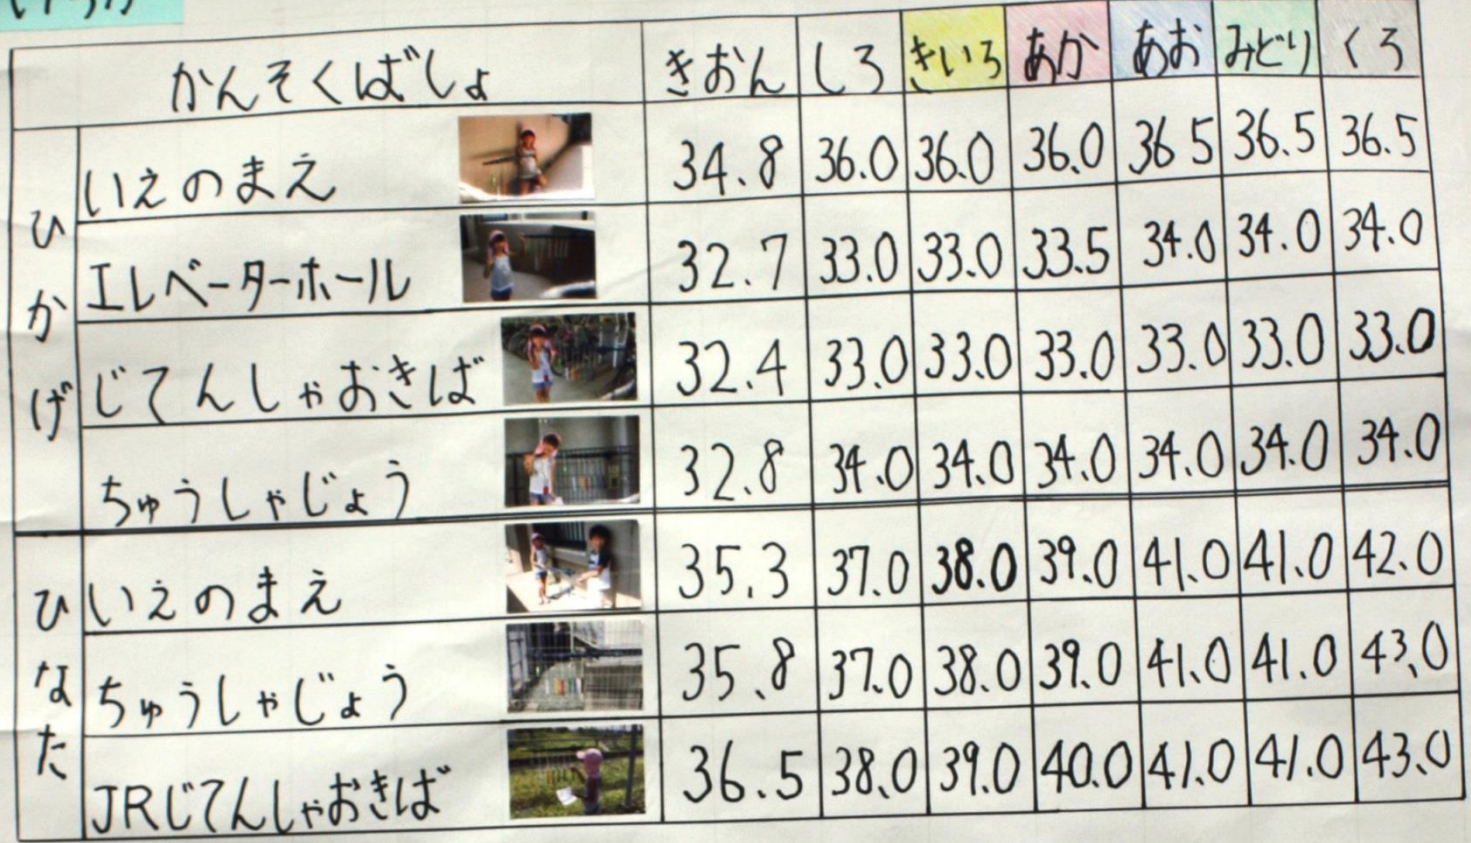 かんそくばしょ きおん しろ きいろ あか あお みどり くろ
ひかげ
いえのまえ 34.8 36.0 36.0 36.0 36 5 36.5 36.5
エレベーターホール 32.7 33.0 33.0 33.5 34.0 34.0 34.0
じてんしゃおきば 32.4 33.0 33.0 33.0 33.0 33.0 33.0
ちゅうしゃじょう 32.8 34.0 34.0 34.0 34.0 34.0 34.0
ひなた
いえのまえ 35.3 37.0 38.0 39.0 41.0 41.0 42.0
ちゅうしゃじょう 35.8 37.0 38.0 39.0 41.0 41.0 43.0
JRじてんしゃおきば 36.5 38.0 39.0 40.0 41.0 41.0 43.0